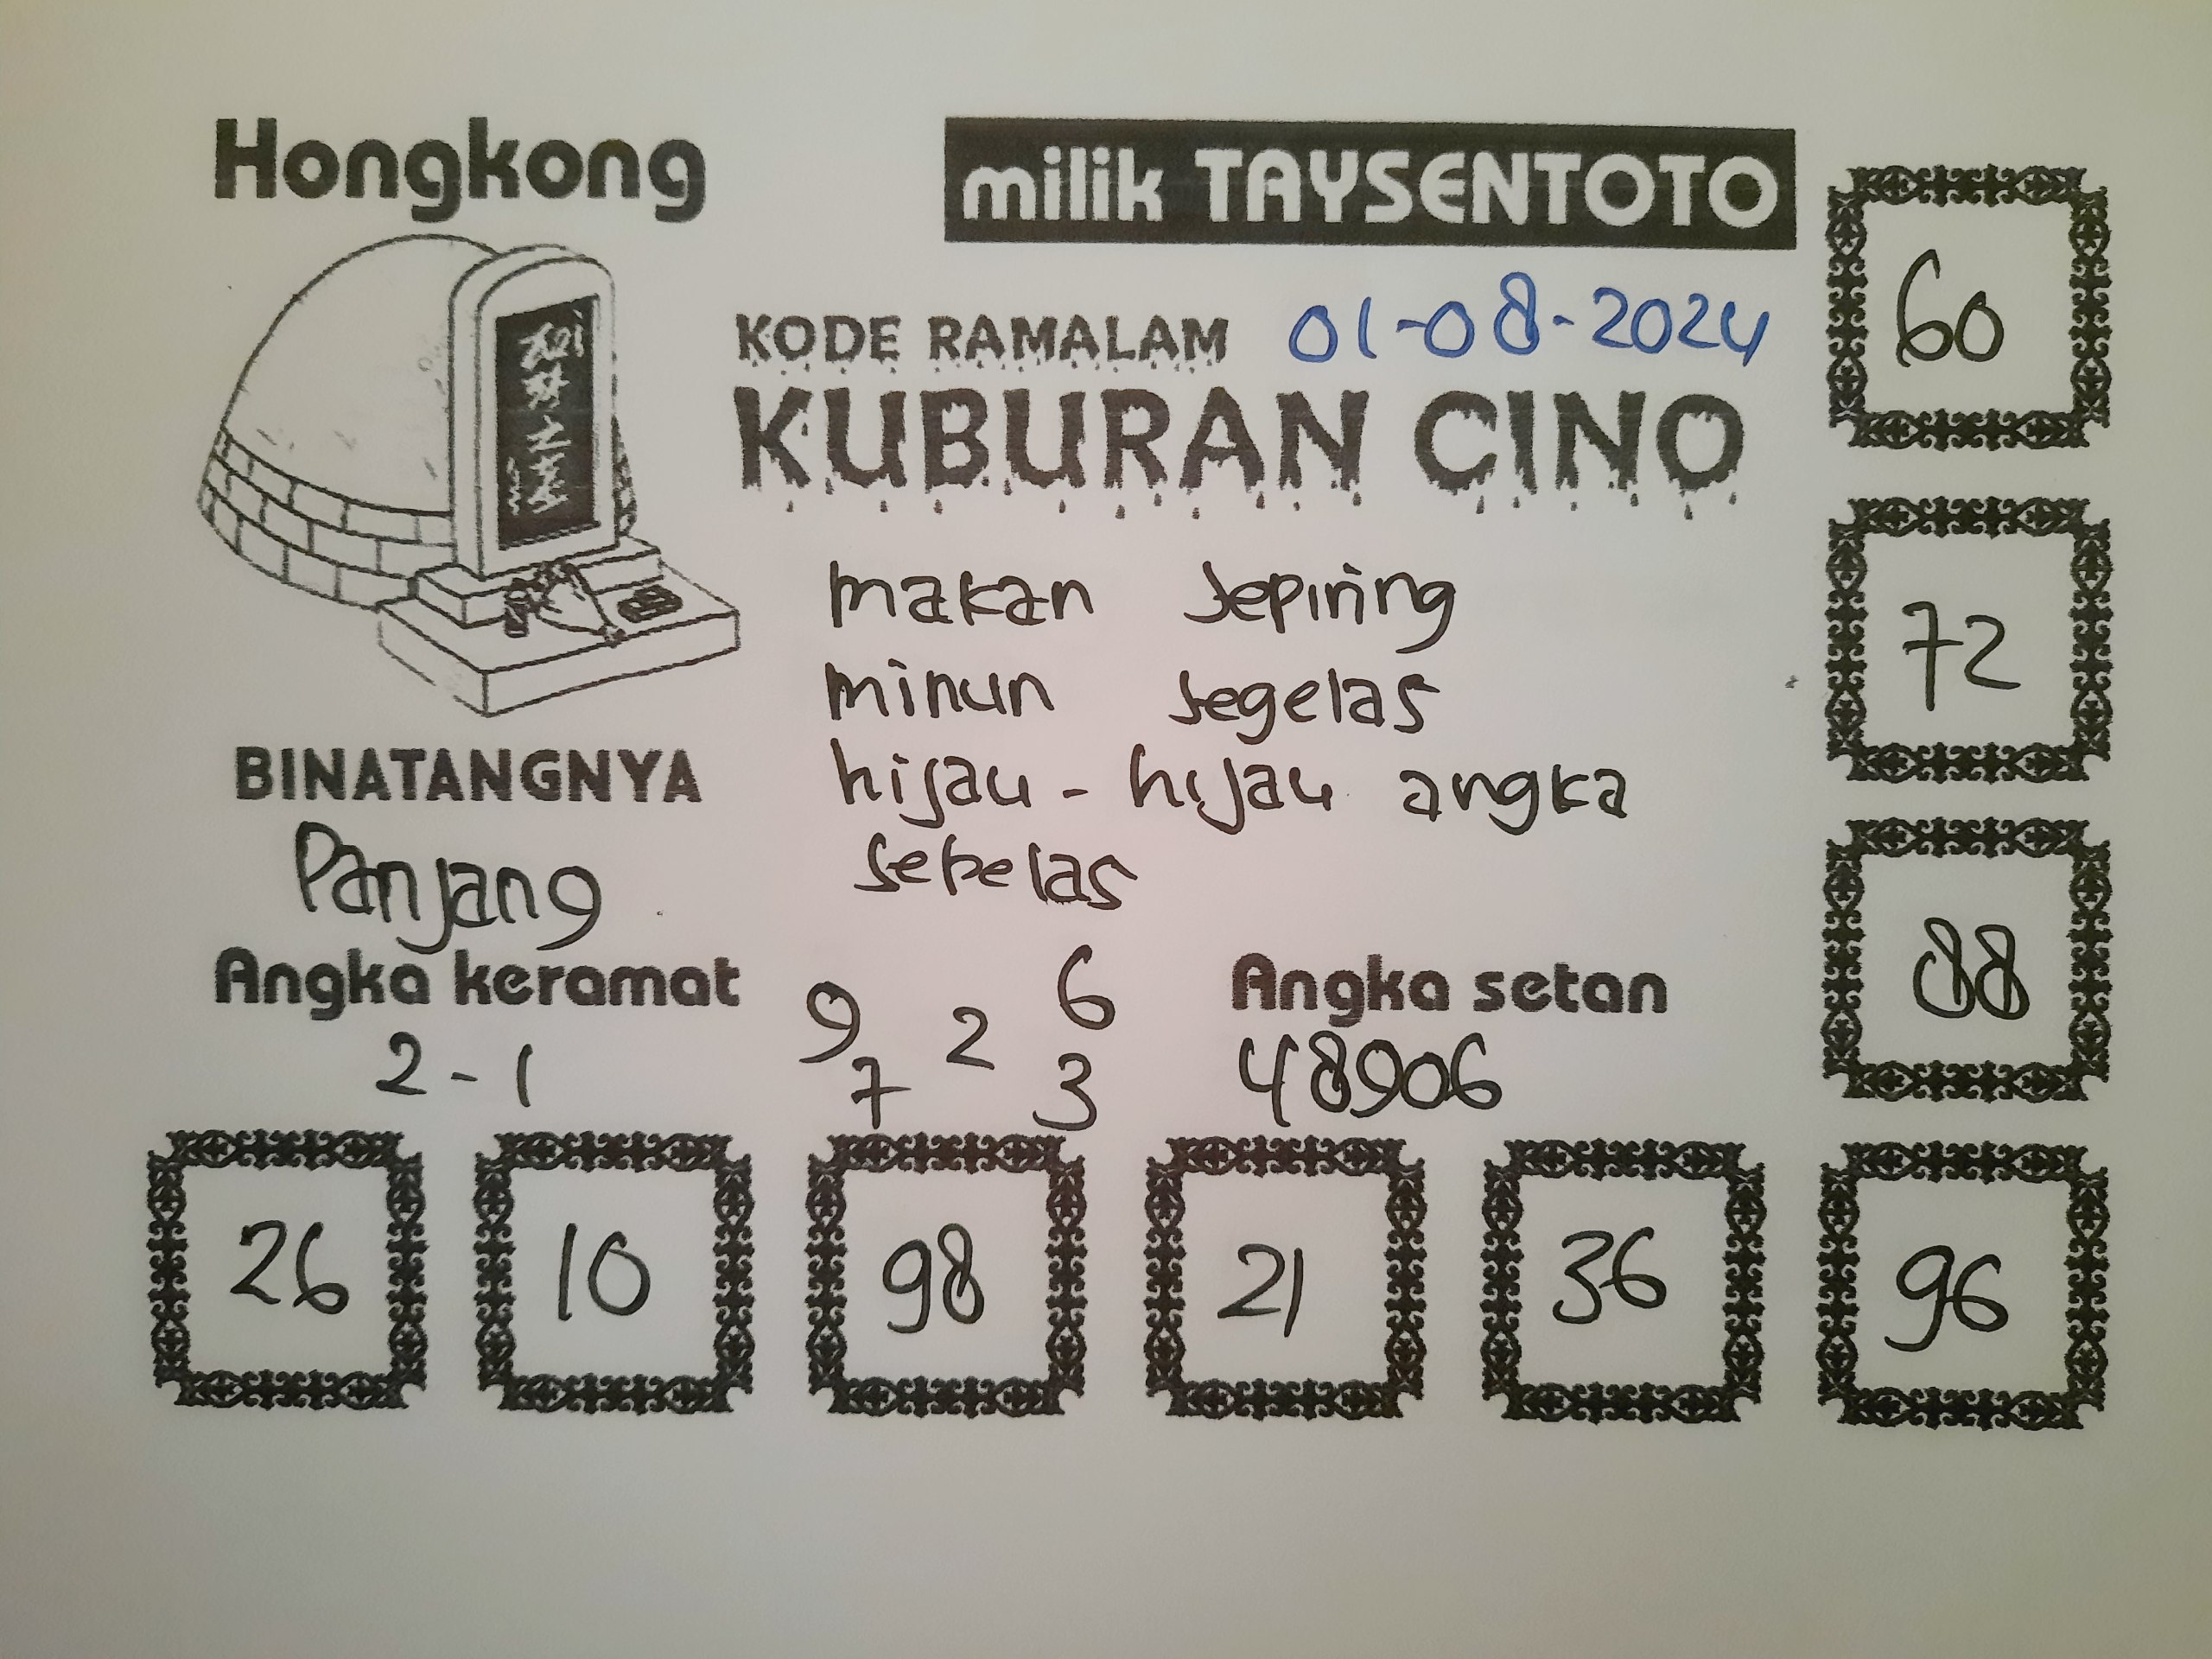 Hongkong
milik TAYSENTOTO
KODE RAMALAM 01-08-2024
KUBURAN CINO
makan sepiring
minun segelas
hijau - hijau angka
sebelas
BINATANGNYA
Panjang
Angka keramat
2 - 1
9 2 6
7 3
Angka setan
48906
60
72
88
26 10 98 21 36 96